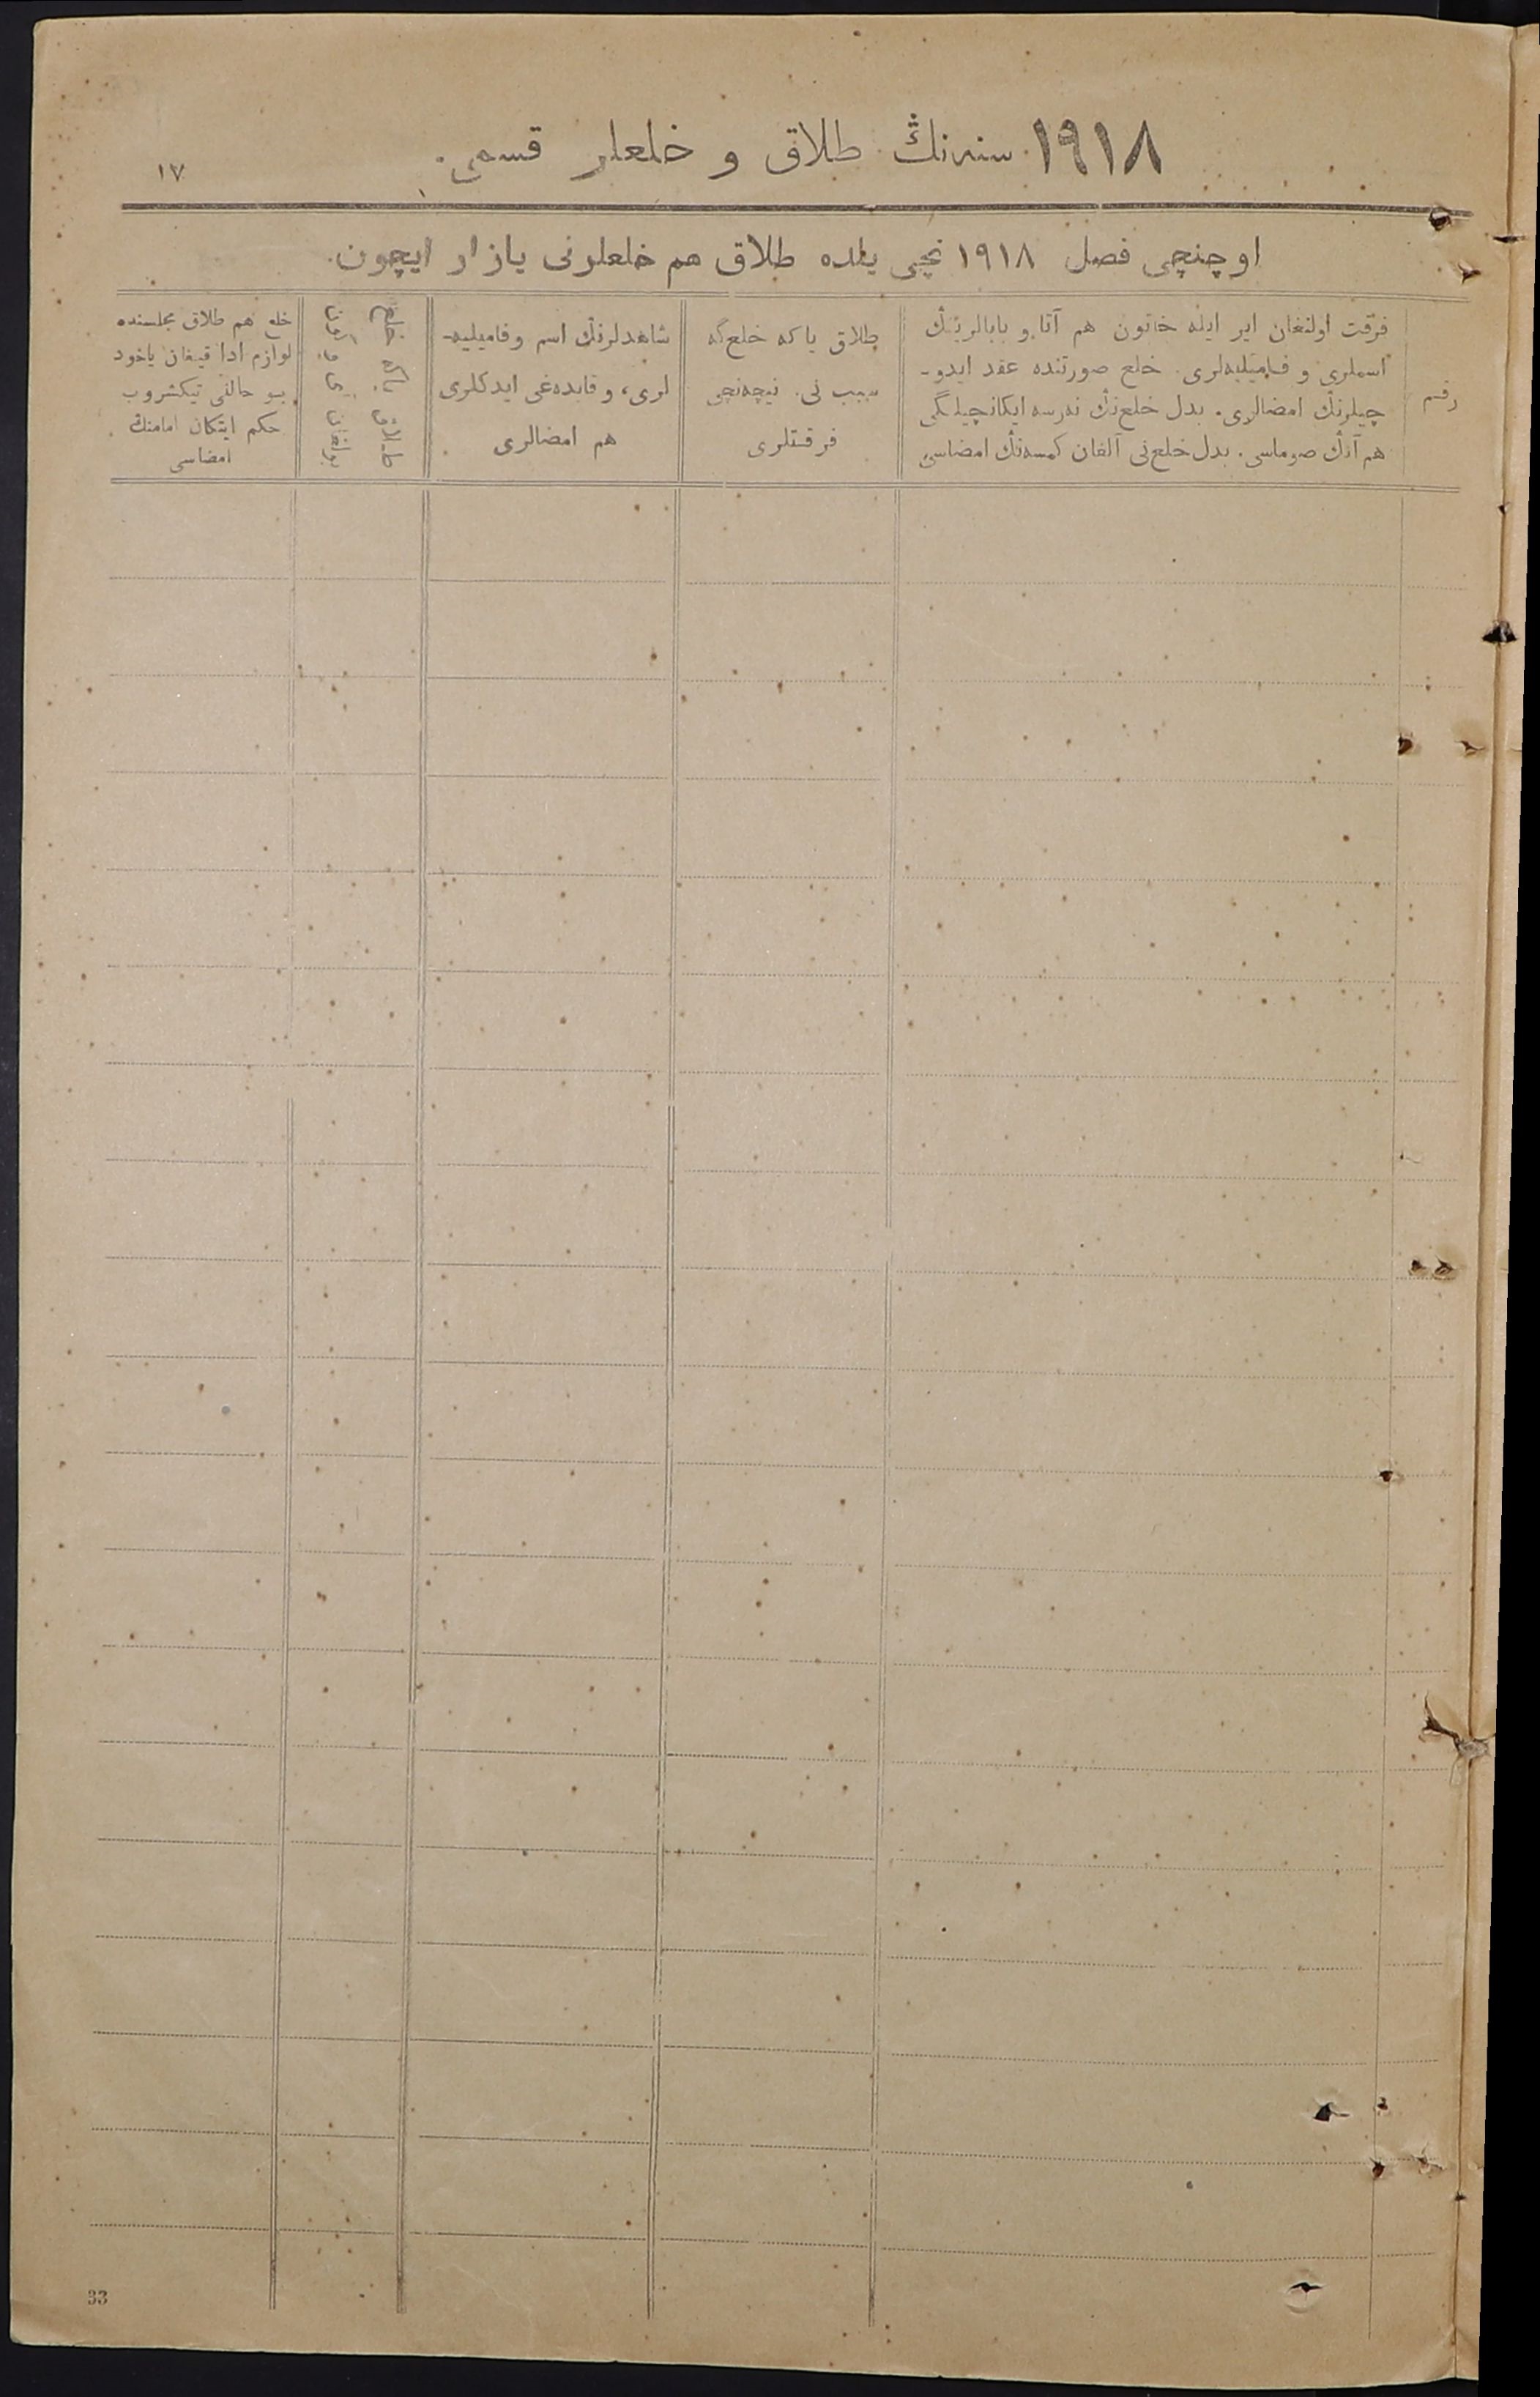 ١٩١٨ سنه‌نڭ طلاق و خلعلر قسمى.
١٧
اوچنچى فصل ١٩١٨ نچى يلده طلاق هم خلعلرنى يازار ايچون.
رقم
فرقت اولنغان اير ايله خاتون هم آتا و بابالرينڭ
اسملرى و فاميليه‌لرى. خلع صورتنده عقد ايدو-
چيلرنڭ امضالرى. بدل خلع‌نڭ نه‌رسه ايكانچيلگى
هم آنڭ صوماسى. بدل خلع‌نى آلغان كمسه‌نڭ امضاسى
طلاق ياكه خلع‌گه
سبب نى. نيچه‌نچى
فرقتلرى
شاهدلرنڭ اسم و فاميليه-
لرى، و قايده‌غى ايدكلرى
هم امضالرى
خلع هم طلاق مجلسنده
لوازم ادا قيلغان ياخود
بو حالنى تيكشروب
حكم ايتكان امامنڭ
امضاسى
33